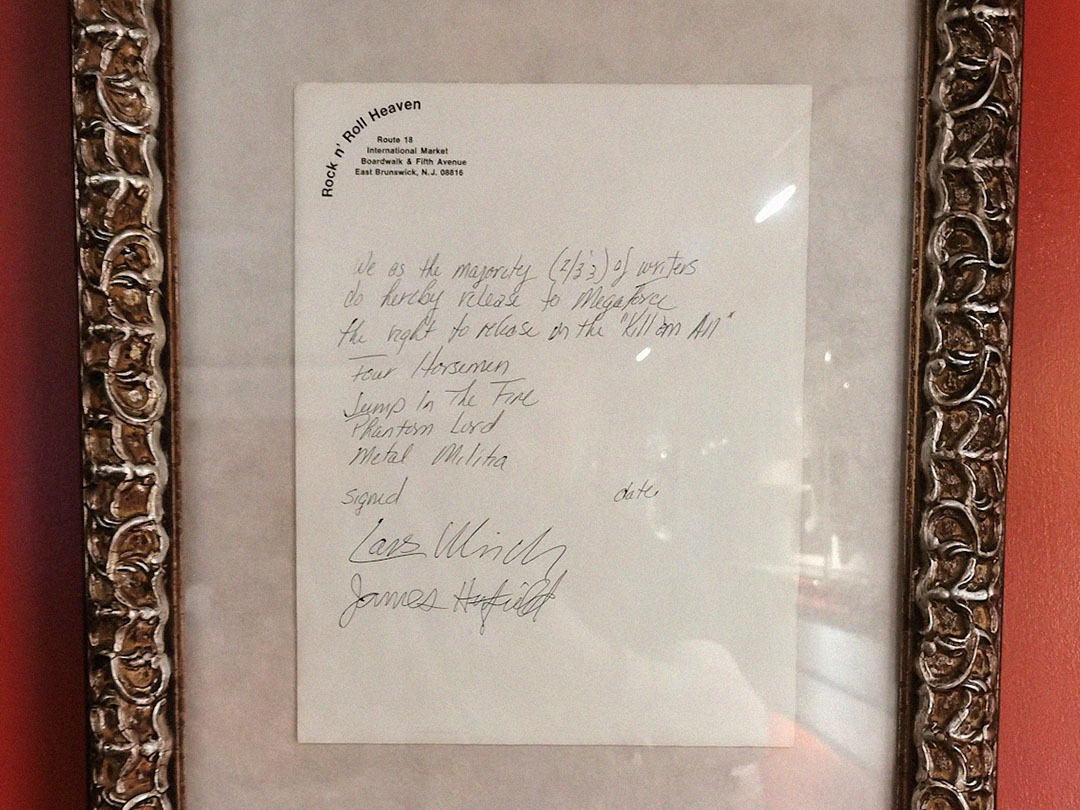 Rock n' Roll Heaven
Route 18
International Market
Boardwalk & Fifth Avenue
East Brunswick, N.J. 08816
We as the majority (2/3's) of writers
do hereby release to Megaforce
the right to release on the "Kill em All"
Four Horsemen
Jump In The Fire
Phantom Lord
Metal Militia
signed date
Lars Ulrich
James Hetfield